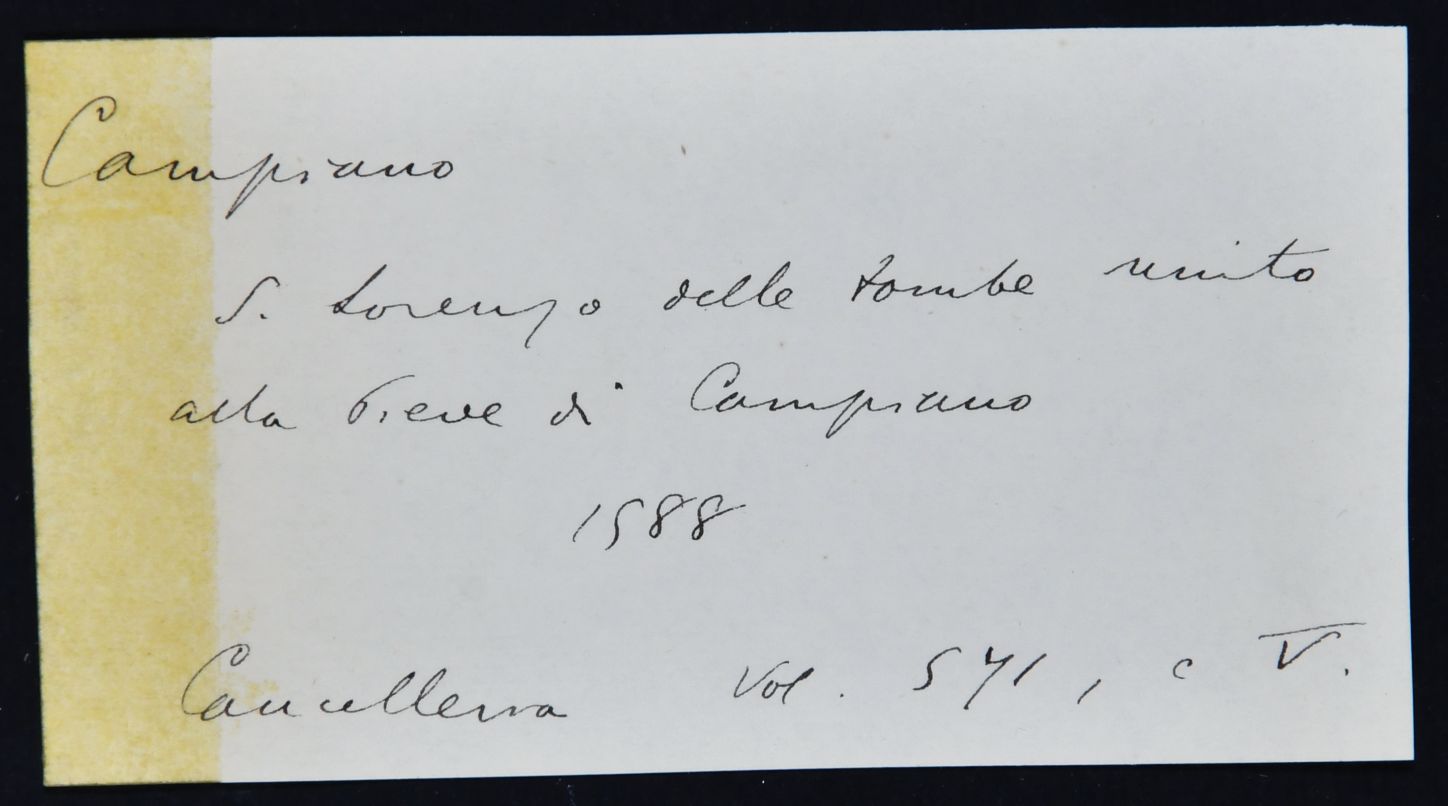 Campiano
S. Lorenzo delle tombe unito
alla Pieve di Campiano
1588
Cancelleria Vol. 541, c V.